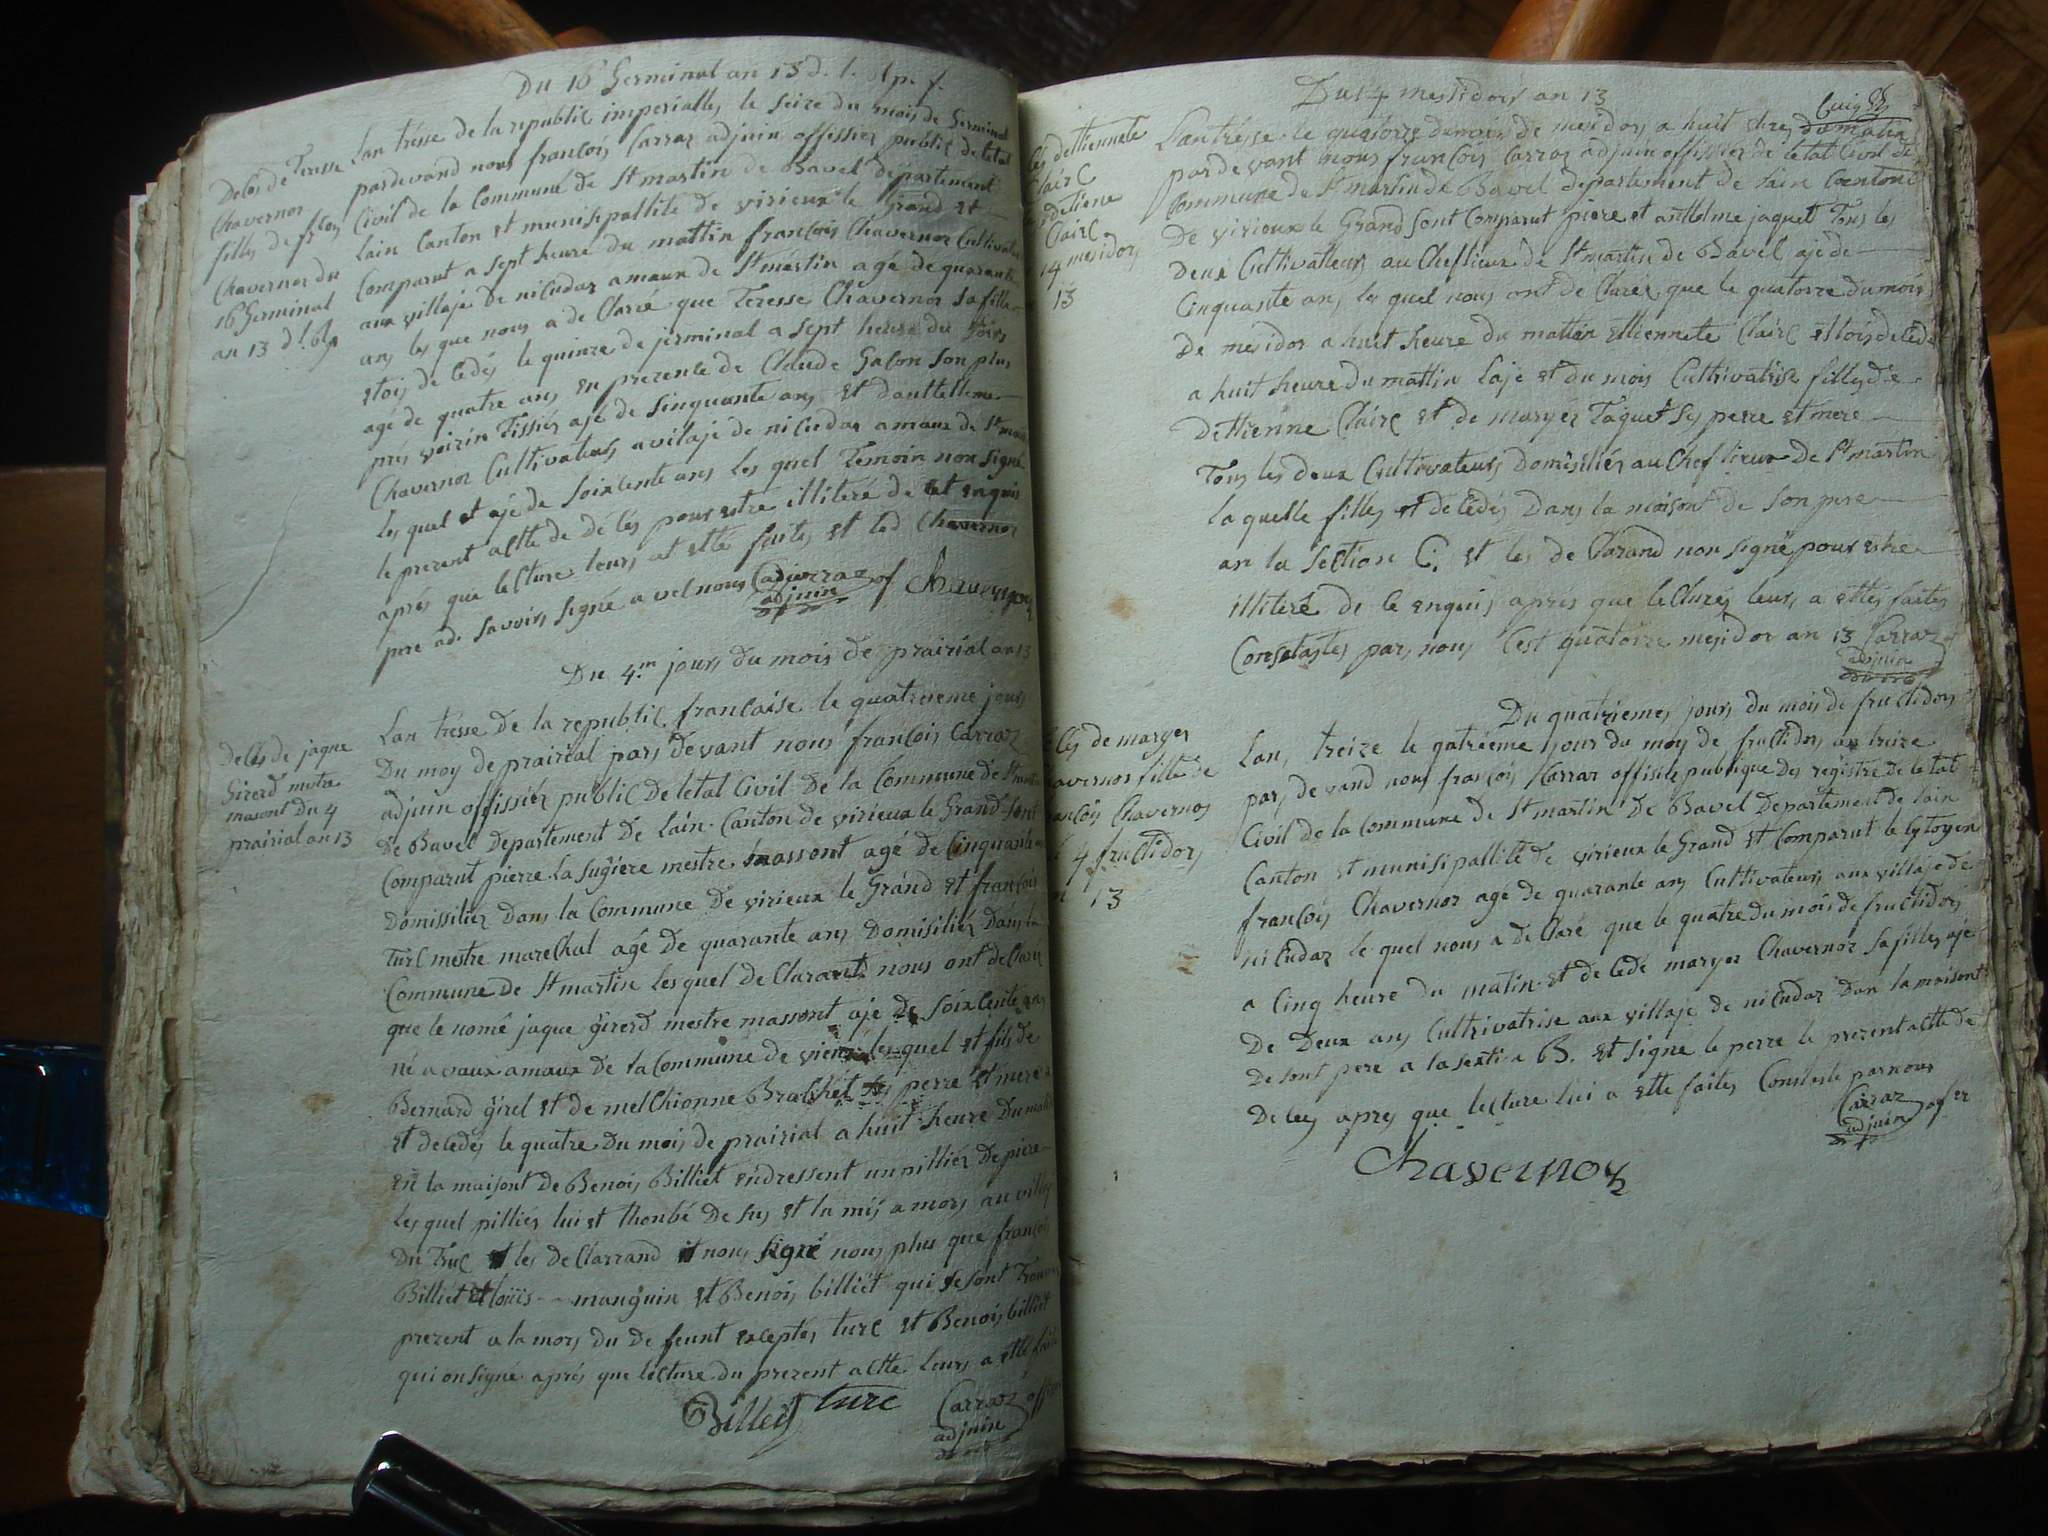 Du 16 Germinal an 13 d. l. Rp. f.
Delés de Teresse
Chavernor
fille de f.çois
Chavernor du
16 Germinal
an 13 d. l. Rp
Lan trésse de la republic imperialle, le seize du mois de Germinal
pardevand nous françois Carraz adjuin offissier public de letat
Civil de la Commune de St martin de Bavel departement
Lain Canton et munisipallité de virieux le Grand et
Comparut a sept heure du mattin françois Chavernor Cultivateur
aux village de nicudaz amaux de St mertin agé de quarante
ans les que nous a de Claré que Teresse Chavernor sa fille
etois de Cedés le quinze de jerminal a sept heure du soirs
agé de quatre ans en prezence de Claude Galon son plus
prés voirin Tissiés ajé de sinquante ans et danttellme
Chavernor Cultivateurs a vilaje de nicudaz amaux de St martin
les quel et ajé de soixcente ans les quel Temoin non signé
le prezent actte de dé Cés pour estre illiteré de cet enquis
aprés que lecture leurs at etté faites et led Chavernor
pere ad. savoirs signé avel nous Carraz of Chavernoz
adjuin
Du 4.m jours du mois de prairial an 13
Delés de jaque
Girerd metre
masont du 4
prairial an 13
Lan tresse de la republic francaise le quatreieme jours
Du moy de prairéal pars devant nous françois Carraz
adjuin offissiér public De letat Civil De la Commune de St martin
De Bavel Departement De Lain Canton de virieux le Grand sont
Comparut pierre la sugiere mestre massont agé de Cinquante
Domissiliez Dans la Commune De virieux le Grand et francois
Turc mestre marechal agé De quarante ans Domisiliés Dans la
Commune de St martin les quel de Clarants nous ont de Claré
que le nomé jaque girerd mestre massont aje de soixcente ans
né a vaux amaux de la Commune de les quel et fils de
Bernard girel et de melchionne Brachet Ses perre et mere
et decedés le quatre Du mois de prairial a huit heure Du matin
en la maisont de Benois Billiet endressent un pilliés De piere
les quel pilliés lui et thonbé De sus et la mis a mors au village
Du Truc et les de Clarrand et nous signé nous plus que françois
Billiet et loüis manguin et Benois billiét qui se sont Trouvé
prezent a la mors du de feunt exceptés turc et Benois billiet
qui on signé aprés que lecture du prezent actte leurs a etté faite
Billiet turc Carraz off
adjuin
Du 14 mesidors an 13
dettiennete
Clairc
detiene
Clairc
14 mesidors
13
Lan trésse le quatorze du mois de mesidors a huit du matin
pardevant nous françois Carraz adjuin offissier de letat Civil de
Commune de St martin de Bavel departement de Lain Cantont
De virieux le Grand sont Comparut piere et anthelme jaquet Tous les
Deux Cultivatteurs au Cheflieux de St martin de Bavel aje de
Cinquante ans les quel nous ont de Claréz que le quatorze du mois
De mesidor a huit heure du mattin ettiennete Clairc ettois de Cedé
a huit heure du mattin laje et du mois Cultrivatrise filles de
Dettiénne Clairc et de maryes Taquet ses perre et mere
Tous les deux Cultivateurs Domisiliés au Chef lieux de St martin
la quelle filles et de Cedés Dans la maisont de Son pere
an la section C. et les de Clarand non signé pour estre
illiteré de Ce enquis apres que lectures leurs a ettés faites
Constates pars nous Cest quatorze mesidor an 13 Carraz
adjuin
Du quatriemes jours du mois de fructidors
de maryes
Chavernor fille de
francois Chavernor
4 fructidors
13
Lan, treize le qatriéeme jour du moy de fructidors an treize
pars de vand nous françois Karraz offisiés publique des registre de letat
Civil de la commune de St martin De Bavel Departement de lain
Canton et munisipallité de virieux le Grand et Comparut le Cytoyen
françois Chavernoz agé de quarante ans Cultivateurs aux villaje de
nicudaz le quel nous a de Claré que le quatre du mois de fructidors
a Cinq heure du matin et de Cedé maryes Chavernoz sa filles ajé
De Deux ans Cultrivatrise aux villaje de nicudaz Dan la maisont
De sont pere a la sextion B. et signe le perre le prezent actte de
De Ces apres que lecture lui a etté faites Consteste par nous
Carraz of er
adjuin
Chavernoz